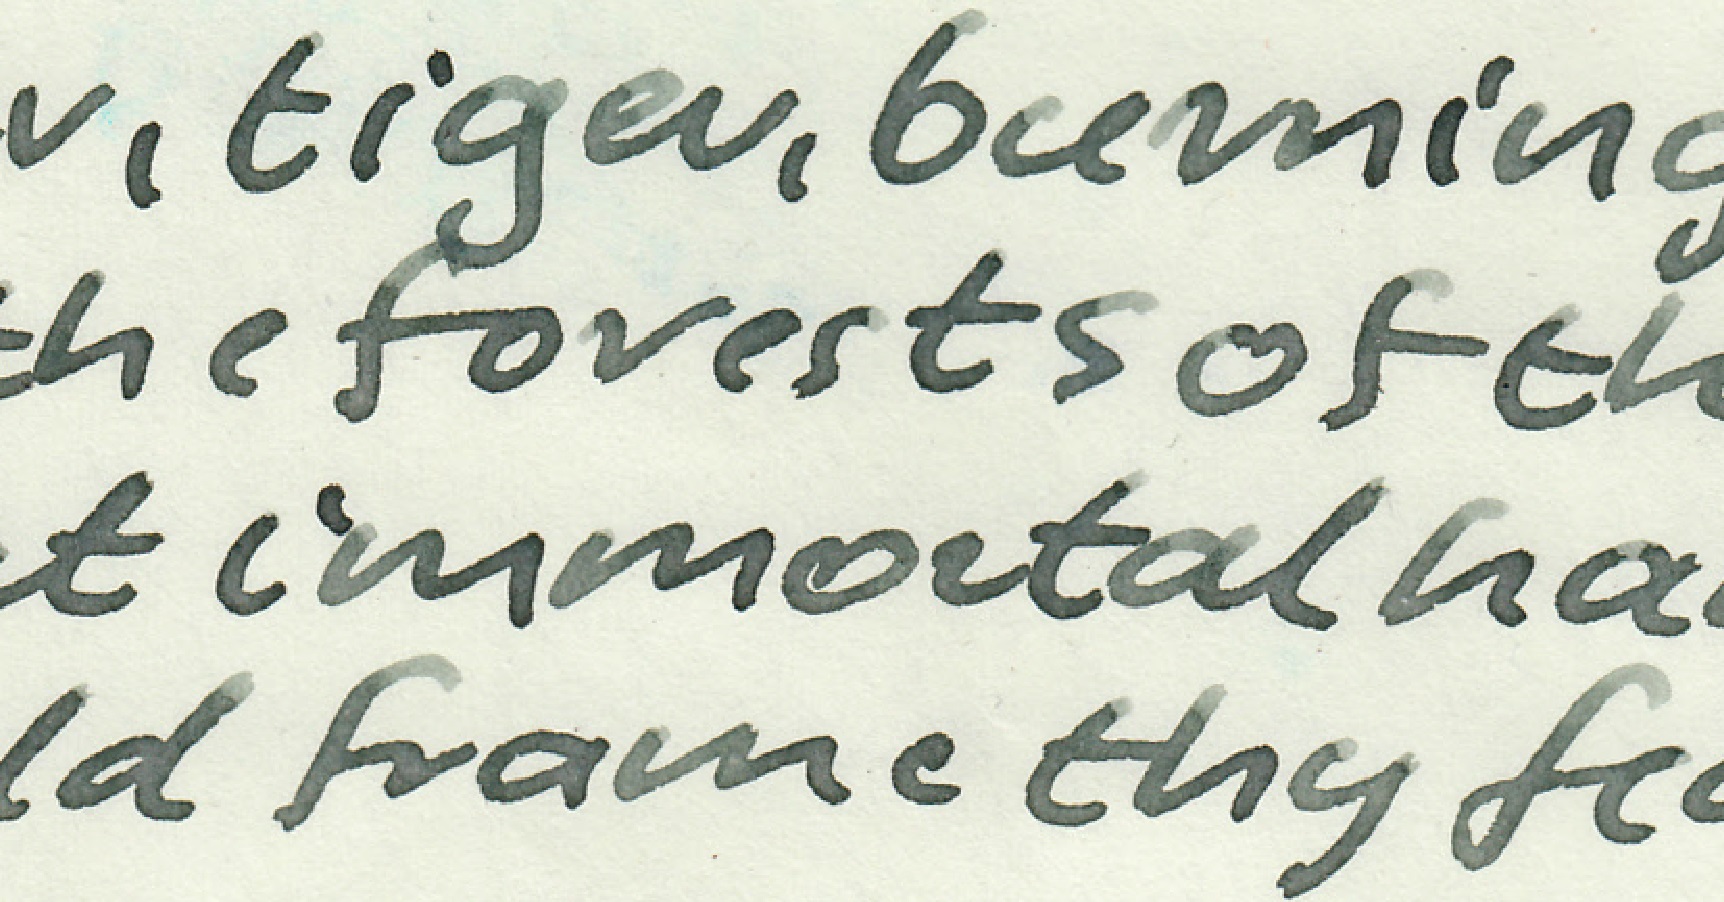 r, tiger, burning
the forests of th
at immortal han
ld frame thy fea